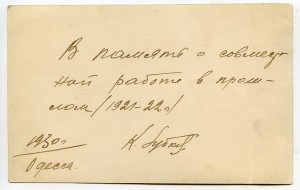 В память о совмест
ной работе в прош-
лом (1921-22г)
1930г
Одесса.
К.